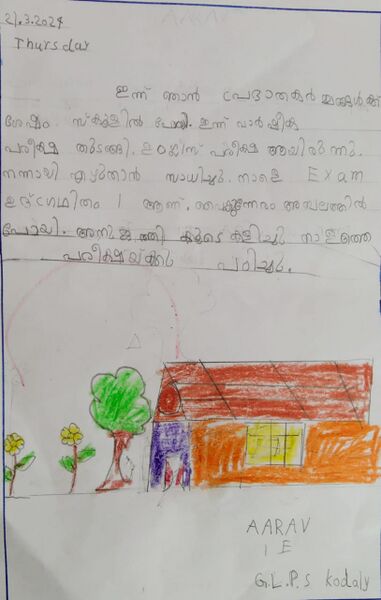 21.3.2024
Thursday
ഇന്ന് ഞാൻ പ്രഭാതകർമ്മങ്ങൾക്ക്
ശേഷം സ്കൂളിൽ പോയി. ഇന്ന് വാർഷിക
പരീക്ഷ തുടങ്ങി. ഇംഗ്ലീസ് പരീക്ഷ ആയിരുന്നു.
നന്നായി എഴുതാൻ സാധിച്ചു. നാളെ Exam
ഉദ്ഗ്രഥിതം 1 ആണ്. വൈകുന്നേരം അമ്പലത്തിൽ
പോയി. അനുജത്തി കൂടെ കളിച്ചു നാളത്തെ
പരീക്ഷയ്ക്കു പഠിച്ചു.
AARAV
1 E
G.L.P.S kodaly